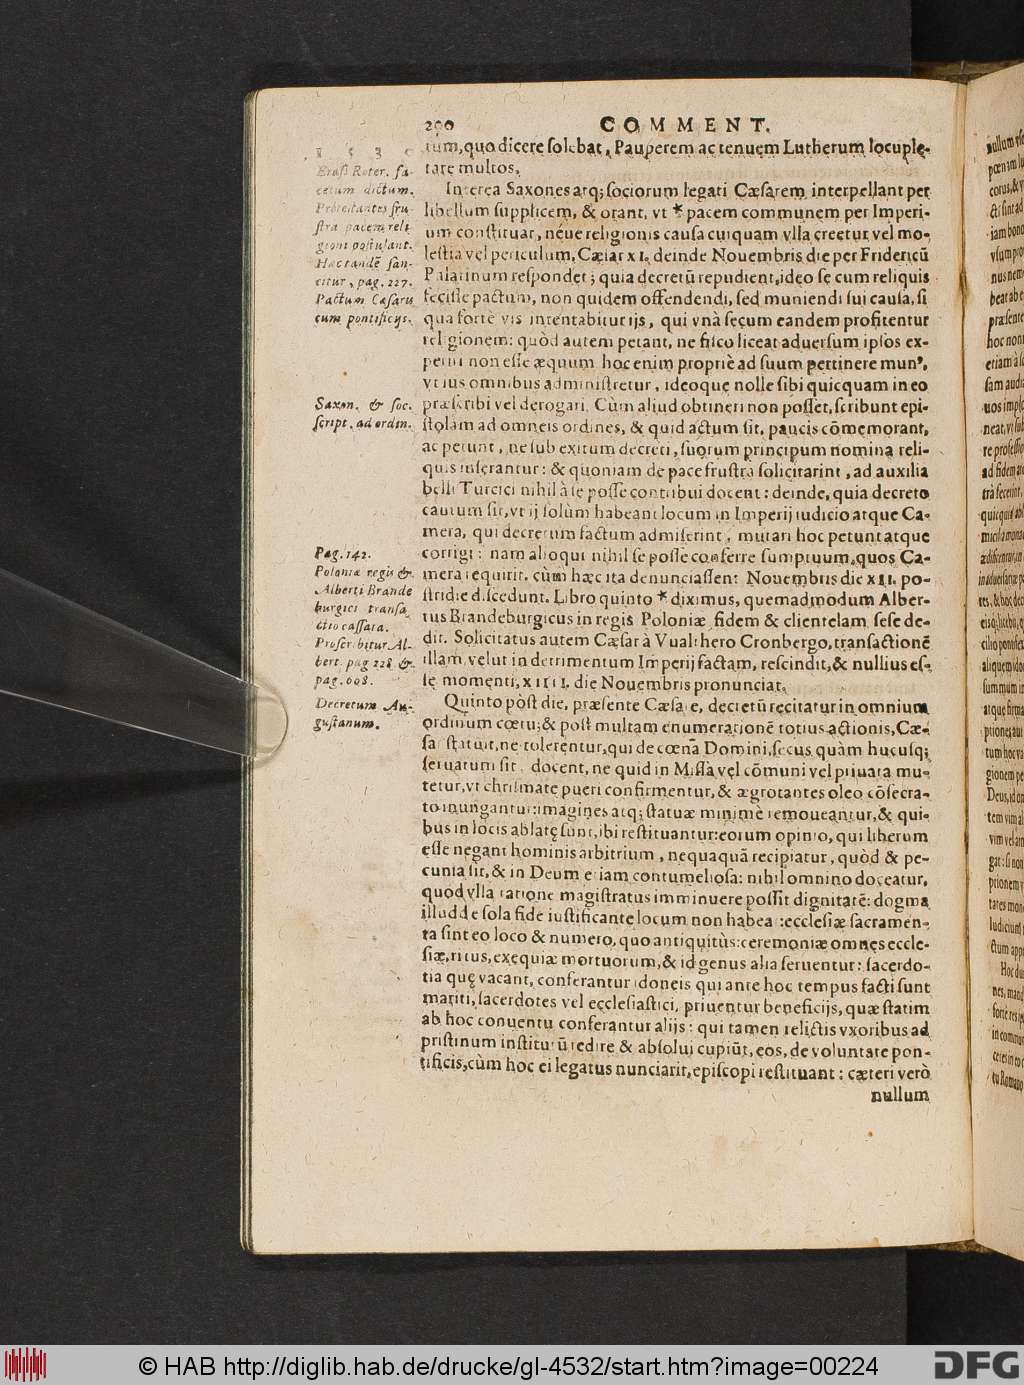 200 COMMENT.
tum, quo dicere solebat, Pauperem ac tenuem Lutherum locuple-
tare multos.
Interea Saxones atq; sociorum legati Cæsarem interpellant per
libellum supplicem, & orant, vt * pacem communem per Imperi-
um constituat, néue religionis causa cuiquam vlla creetur vel mo-
lestia vel periculum, Cæsar XI. deinde Nouembris die per Fridericū
Palatinum respondet; quia decretū repudient, ideo se cum reliquis
fecisse pactum, non quidem offendendi, sed muniendi sui causa, si
qua fortè vis intentabitur ijs, qui vnà secum eandem profitentur
religionem: quòd autem petant, ne fisco liceat aduersum ipsos ex-
periri non esse æquum hoc enim propriè ad suum pertinere munꝰ,
vt ius omnibus administretur, ideoque nolle sibi quicquam in eo
præscribi vel derogari. Cùm aliud obtineri non posset, scribunt epi-
stolam ad omneis ordines, & quid actum sit, paucis cōmemorant,
ac petunt, ne sub exitum decreti, suorum principum nomina reli-
quis inserantur: & quoniam de pace frustra solicitarint, ad auxilia
belli Turcici nihil à se posse contribui docent: deinde, quia decreto
cautum sit, vt ij solùm habeant locum in Imperij iudicio atque Ca-
mera, qui decretum factum admiserint, mutari hoc petunt atque
corrigi: nam alioqui nihil se posse conferre sumptuum, quos Ca-
mera requirit. cùm hæc ita denunciassent Nouembris die XII. po-
stridie discedunt. Libro quinto * diximus, quemadmodum Alber-
tus Brandeburgicus in regis Poloniæ fidem & clientelam sese de-
dit. Solicitatus autem Cæsar à Vualthero Cronbergo, transactionē
illam velut in detrimentum Imperij factam, rescindit, & nullius es-
se momenti, XIIII. die Nouembris pronunciat.
Quinto pòst die, præsente Cæsare, decretū recitatur in omnium
ordinum cœtu; & post multam enumerationē totius actionis, Cæ-
sar statuit, ne tolerentur, qui de cœnâ Domini, secus quàm hucusq;
seruatum sit, docent, ne quid in Missâ vel cōmuni vel priuata mu-
tetur, vt chrismate pueri confirmentur, & ægrotantes oleo cōsecra-
to inungantur: imagines atq; statuæ minimè remoueantur, & qui-
bus in locis ablatę sunt, ibi restituantur: eorum opinio, qui liberum
esse negant hominis arbitrium, nequaquā recipiatur, quòd & pe-
cunia sit, & in Deum etiam contumeliosa: nihil omnino doceatur,
quod vlla ratione magistratus imminuere possit dignitatē: dogma
illud de sola fide iustificante locum non habeat: ecclesiæ sacramen-
ta sint eo loco & numero, quo antiquitùs: ceremoniæ omnes eccle-
siæ, ritus, exequiæ mortuorum, & id genus alia seruentur: sacerdo-
tia quę vacant, conferantur idoneis qui ante hoc tempus facti sunt
mariti, sacerdotes vel ecclesiastici, priuentur beneficijs, quæ statim
ab hoc conuentu conferantur alijs: qui tamen relictis vxoribus ad
pristinum institutū redire & absolui cupiūt, eos, de voluntate pon-
tificis, cùm hoc ei legatus nunciarit, episcopi restituant: cæteri verò
nullum
1530
Erasi Roter. fa-
cetum dictum.
Protestantes fru-
stra pacem reli
gioni postulant.
Hac tandē san-
citur, pag. 227.
Pactum Cæsaru
cum pontificijs.
Saxon. & soc.
script. ad ordin.
Pag. 142.
Poloniæ regis &
Alberti Brande
burgici transa
ctio cassata.
Proscribitur Al-
bert. pag 228 &
pag. 608.
Decretum Au-
gustanum.
© HAB http://diglib.hab.de/drucke/gl-4532/start.htm?image=00224
DFG